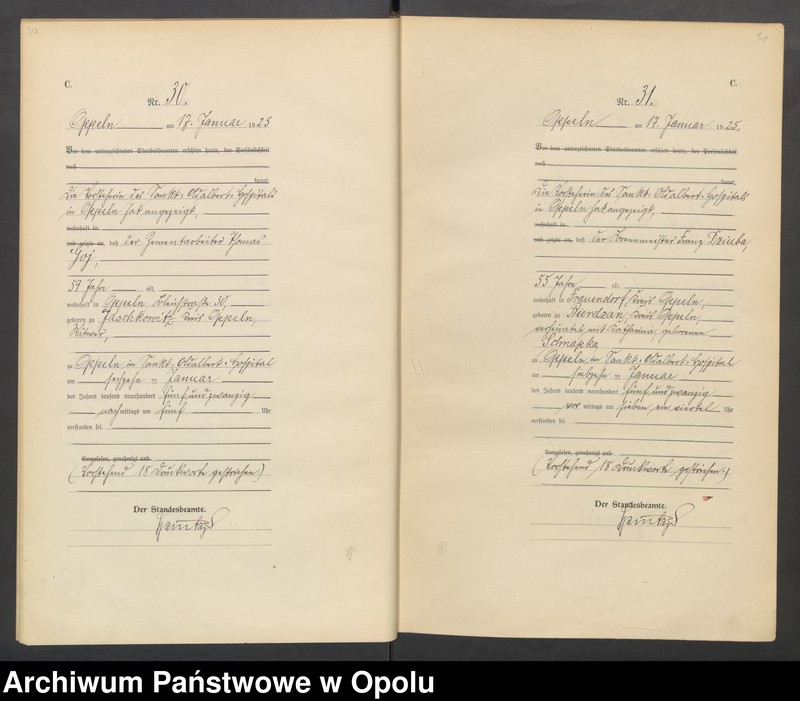 C.
Nr. 30.
Oppeln am 17. Januar 1925
Vor dem unterzeichneten Standesbeamten erschien heute, der Persönlichkeit
nach
kannt,
Die Vorsteherin des Sankt. Adalbert. Hospitals
in Oppeln hat angezeigt,
wohnhaft in
und zeigte an, daß der Zementarbeiter Thomas
Goj,
59 Jahre alt,
wohnhaft in Oppeln Bleichstraße 30,
geboren zu Jaschkowitz Kreis Oppeln,
Witwer,
zu Oppeln im Sankt. Adalbert. Hospital
am sechzehn ten Januar
des Jahres tausend neunhundert fünfundzwanzig
nach mittags um fünf Uhr
verstorben sei.
Vorgelesen, genehmigt und
(Vorstehend 18 Druckworte gestrichen.)
Der Standesbeamte.
C.
Nr. 31.
Oppeln am 17. Januar 1925,
Vor dem unterzeichneten Standesbeamten erschien heute, der Persönlichkeit
nach
kannt,
Die Vorsteherin des Sankt. Adalbert. Hospitals
in Oppeln hat angezeigt,
wohnhaft in
und zeigte an, daß der Brennmeister Franz Dziuba,
55 Jahre alt,
wohnhaft in Frauendorf, Kreis Oppeln,
geboren zu Bierdzan, Kreis Oppeln,
verheiratet mit Katharina, geborenen
Schmapka
zu Oppeln im Sankt. Adalbert. Hospital
am siebzehn ten Januar
des Jahres tausend neunhundert fünfundzwanzig
vor mittags um sieben ein viertel Uhr
verstorben sei.
Vorgelesen, genehmigt und
(Vorstehend 18 Druckworte gestrichen.)
Der Standesbeamte.
Archiwum Państwowe w Opolu